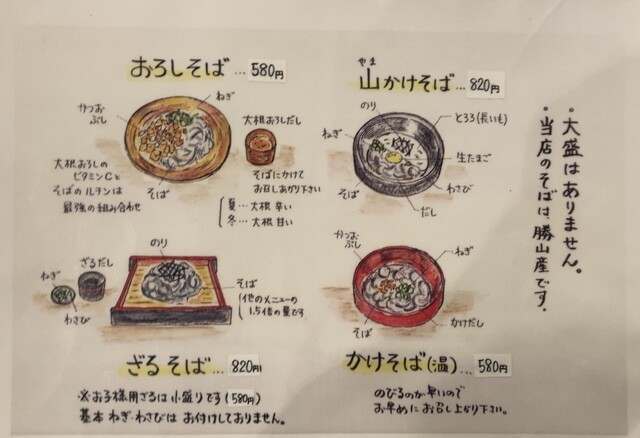 おろしそば … 580円
ねぎ
かつおぶし
大根おろしだし
大根おろしの
ビタミンCと
そばのルチンは
最強の組み合わせ
そば
そばにかけて
お召しあがり下さい
夏…大根 辛い
冬…大根 甘い
やま
山かけそば … 820円
のり
とろろ(長いも)
ねぎ
生たまご
わさび
そば
だし
・大盛はありません。
・当店のそばは、勝山産です.
のり
ざるだし
ねぎ
わさび
そば
(他のメニューの
1.5倍の量です
ざるそば … 820円
※お子様用ざるは小盛りです(580円)
基本 ねぎ・わさびは お付けしておりません。
かつおぶし
ねぎ
そば
かけだし
かけそば(温) … 580円
のびるのが早いので
お早めにお召し上がり下さい。